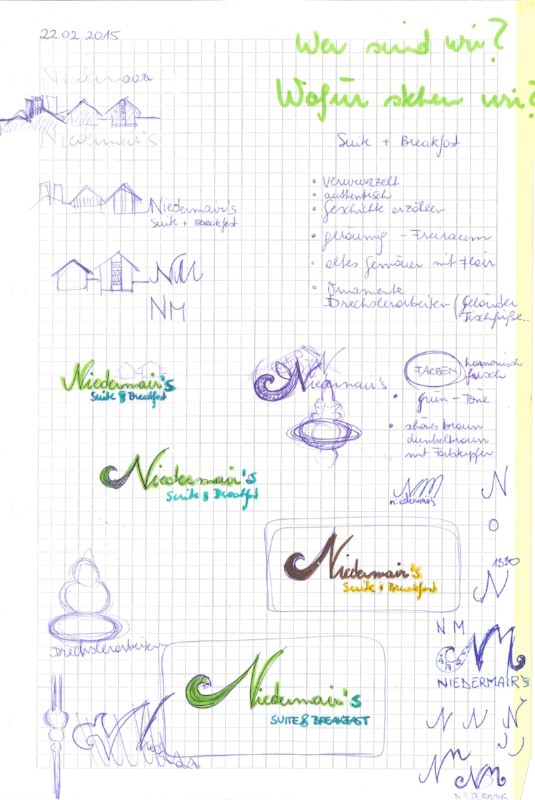 22.02.2015
Wer sind wir?
Wofür stehen wir?
Niedermair's
Suite + Breakfast
• Verwurzelt
• authentisch
• Geschichte erzählen
• geräumig - Freiraum
• altes Gemäuer mit Flair
• Ornamente
Drechslerarbeiten (Geländer
Tischfüße...
Niedermair's
Suite + Breakfast
NM
NM
Niedermair's
Suite & Breakfast
Niedermair's
FARBEN
harmonisch
frisch
• grün - Töne
• schönes braun
dunkelbraun
mit Farbtupfer
Niedermair's
Suite & Breakfast
NM
niedermair's
N
O
1330
N
Niedermair's
Suite + Breakfast
Drechslerarbeiten
N M
NM
NIEDERMAIR'S
Niedermair's
SUITE & BREAKFAST
N N N
NM
NM